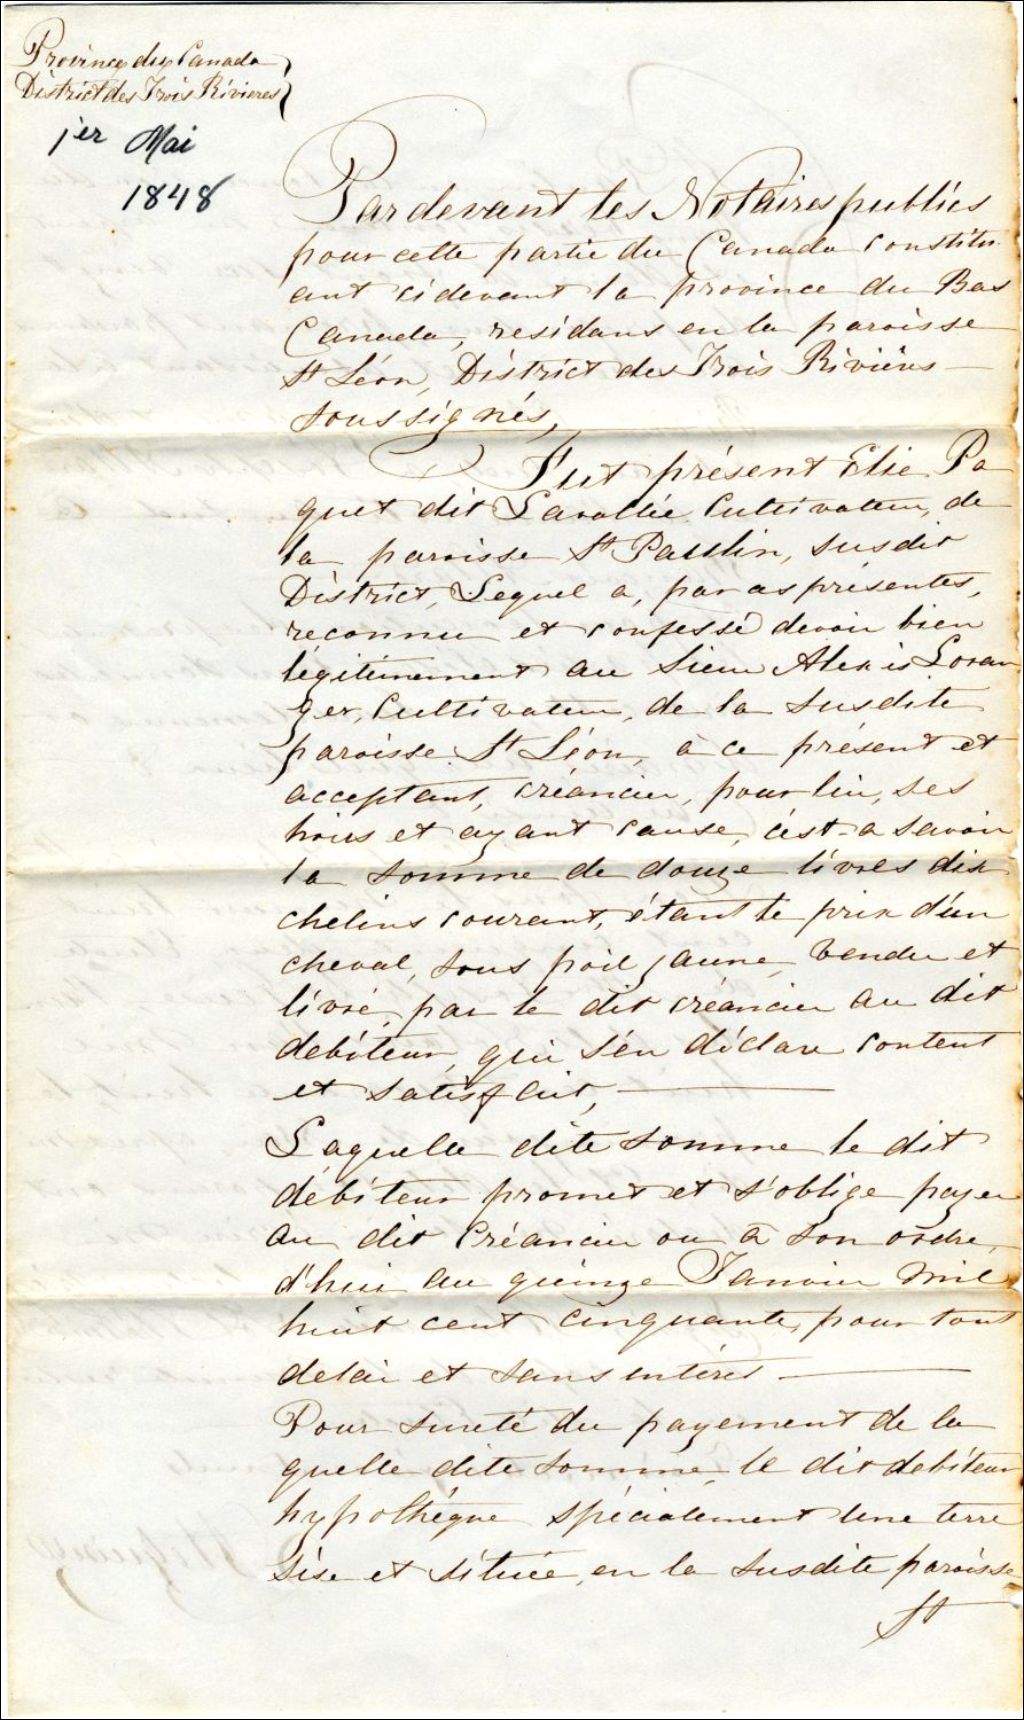 Province du Canada
District des Trois Rivieres
1er Mai
1848
Pardevant les Notaires publics
pour cette partie du Canada constitu
ant cidevant la province du Bas
Canada, residans en la paroisse
St Léon, District des Trois Rivières
soussignés,
Fut présent Elie Pa
quet dit Lavallée Cultivateur, de
la paroisse St Paulin, susdit
District, Lequel a, par ces présentes,
reconnu et confessé devoir bien
légitimement au Sieur Alexis Loran
ger, Cultivateur, de la susdite
paroisse St Léon, à ce présent et
acceptant, créancier, pour lui, ses
hoirs et ayant cause, c'est-a savoir
la somme de douze livres dix
chelins courant, étant le prix d'un
cheval, sous poil jaune, vendu et
livré, par le dit créancier au dit
debiteur, qui s'en déclare content
et satisfait,
Laquelle dite somme le dit
débiteur promet et s'oblige payer
au dit Créancier ou à son ordre,
d'hui au quinze Janvier mil
huit cent cinquante, pour tout
delai et sans intéret
Pour sureté du payement de la
quelle dite somme, le dit debiteur
hypothéque spécialement une terre
sise et située, en la susdite paroisse
St